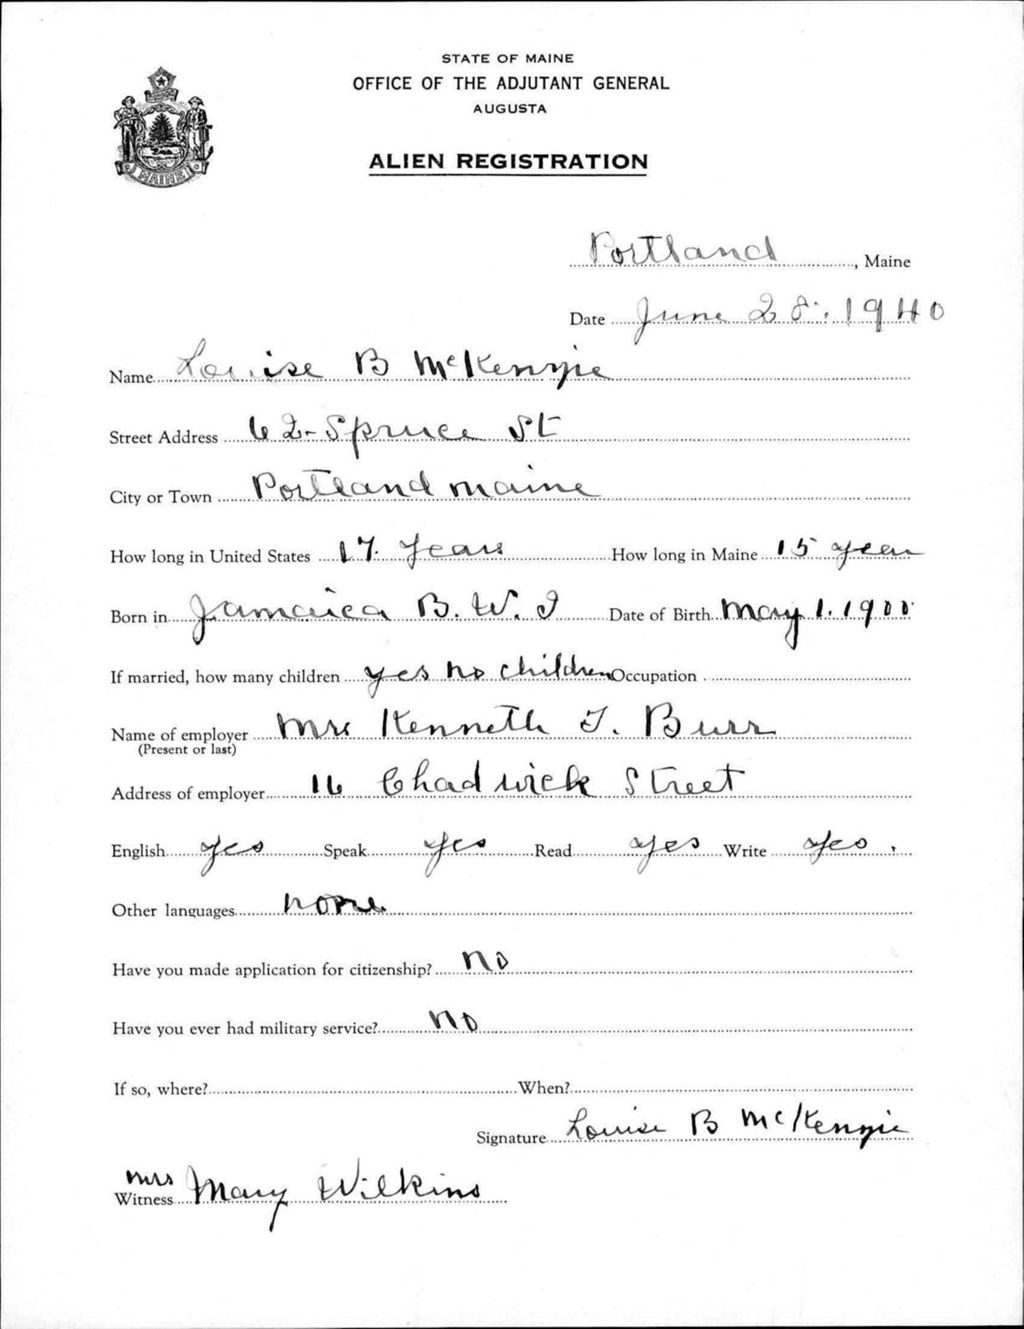 STATE OF MAINE
OFFICE OF THE ADJUTANT GENERAL
AUGUSTA
ALIEN REGISTRATION
MAINE
Portland, Maine
Date June 28. 1940
Name Louise B McKenzie
Street Address 62 - Spruce St
City or Town Portland maine
How long in United States 17 years How long in Maine 15 year
Born in Jamaica B. W. I Date of Birth May 1. 1900
If married, how many children yes no children Occupation
Name of employer Mrs Kenneth T. Burr
(Present or last)
Address of employer 16 Chadwick Street
English yes Speak yes Read yes Write yes.
Other languages none
Have you made application for citizenship? no
Have you ever had military service? no
If so, where? When?
Signature Louise B McKenzie
Witness Mrs Mary Wilkins